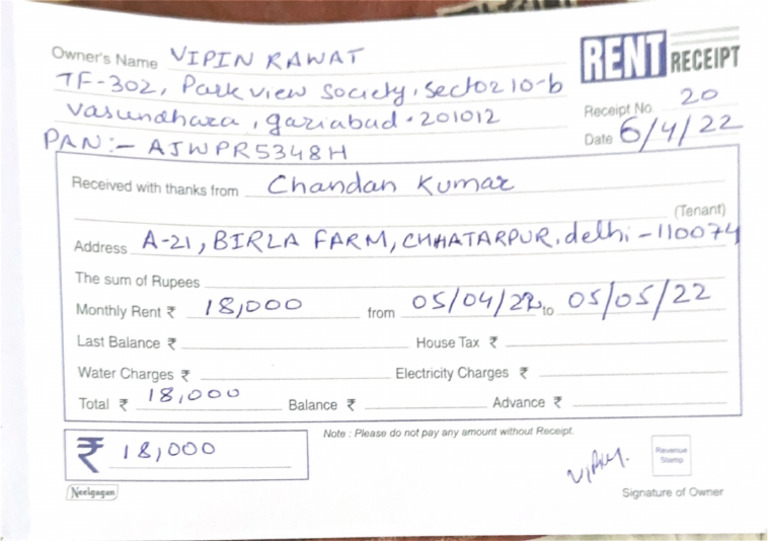 Owner's Name VIPIN RAWAT
RENT RECEIPT
TF-302, Park view Society, Sector 10-b
Receipt No. 20
Vasundhara, gaziabad. 201012
Date 6/4/22
PAN:- AJWPR5348H
Received with thanks from Chandan Kumar
(Tenant)
Address A-21, BIRLA FARM, CHHATARPUR, delhi-110074
The sum of Rupees
Monthly Rent ₹ 18,000 from 05/04/22 to 05/05/22
Last Balance ₹ House Tax ₹
Water Charges ₹ Electricity Charges ₹
Total ₹ 18,000 Balance ₹ Advance ₹
Note : Please do not pay any amount without Receipt.
₹ 18,000
Vipin.
Revenue
Stamp
Neelgagan
Signature of Owner